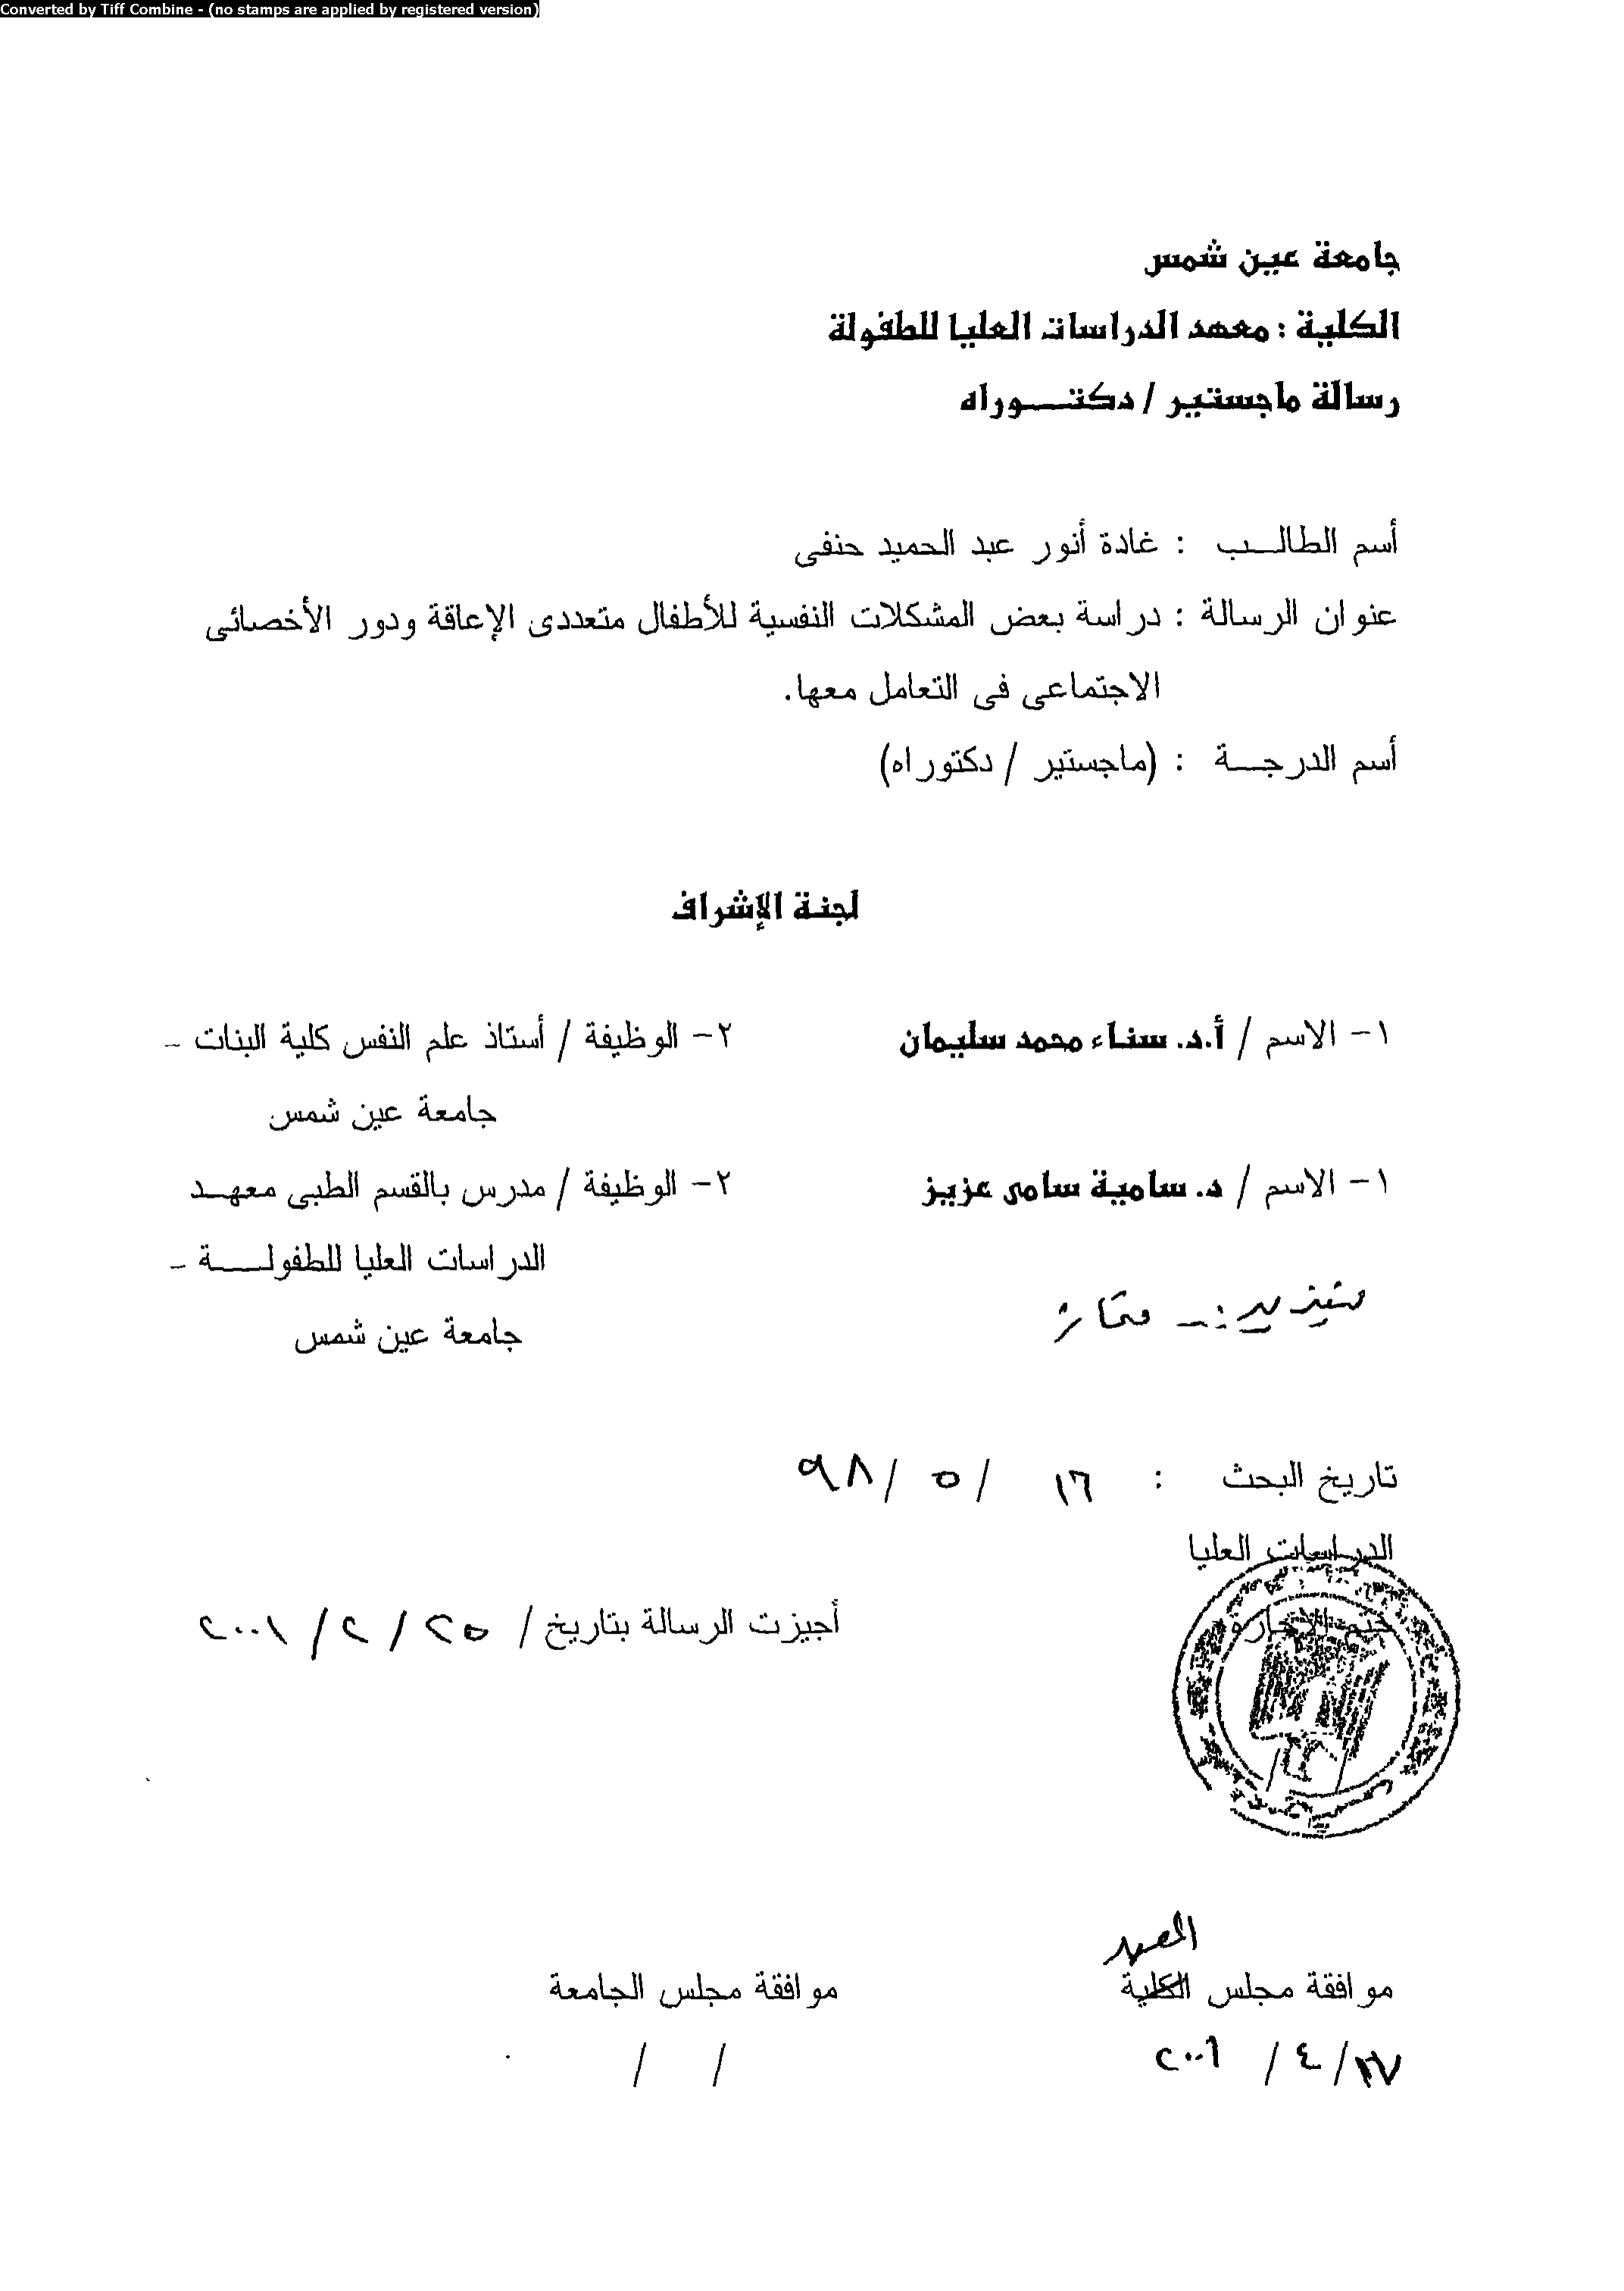 Converted by Tiff Combine - (no stamps are applied by registered version)
جامعة عين شمس
الكلية : معهد الدراسات العليا للطفولة
رسالة ماجستير / دكتــوراه
أسم الطالــب : غادة أنور عبد الحميد حنفى
عنوان الرسالة : دراسة بعض المشكلات النفسية للأطفال متعددى الإعاقة ودور الأخصائى
الاجتماعى فى التعامل معها.
أسم الدرجــة : (ماجستير / دكتوراه)
لجنة الإشراف
١- الاسم / أ.د. سناء محمد سليمان ٢- الوظيفة / أستاذ علم النفس كلية البنات -
جامعة عين شمس
١- الاسم / د. سامية سامى عزيز ٢- الوظيفة / مدرس بالقسم الطبى معهــد
الدراسات العليا للطفولـــة -
ممتاز
جامعة عين شمس
تاريخ البحث : ١٦ / ٥ / ٩٨
الدراسات العليا
ختم الإجازة أجيزت الرسالة بتاريخ / ٢٥ / ٢ / ٢٠٠١
المعهد
موافقة مجلس الكلية موافقة مجلس الجامعة
/ ٤ / ٢٠٠١ / /